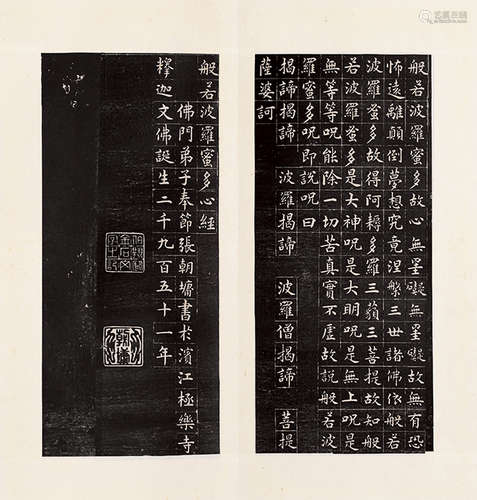 般若波羅蜜多故心無罣礙無罣礙故無有恐
怖遠離顛倒夢想究竟涅槃三世諸佛依般若
波羅蜜多故得阿耨多羅三藐三菩提故知般
若波羅蜜多是大神呪是大明呪是無上呪是
無等等呪能除一切苦真實不虛故說般若波
羅蜜多呪即說呪曰
揭諦揭諦 波羅揭諦 波羅僧揭諦 菩提
薩婆訶
般若波羅蜜多心經
佛門弟子奉節張朝墉書於濱江極樂寺
釋迦文佛誕生二千九百五十一年